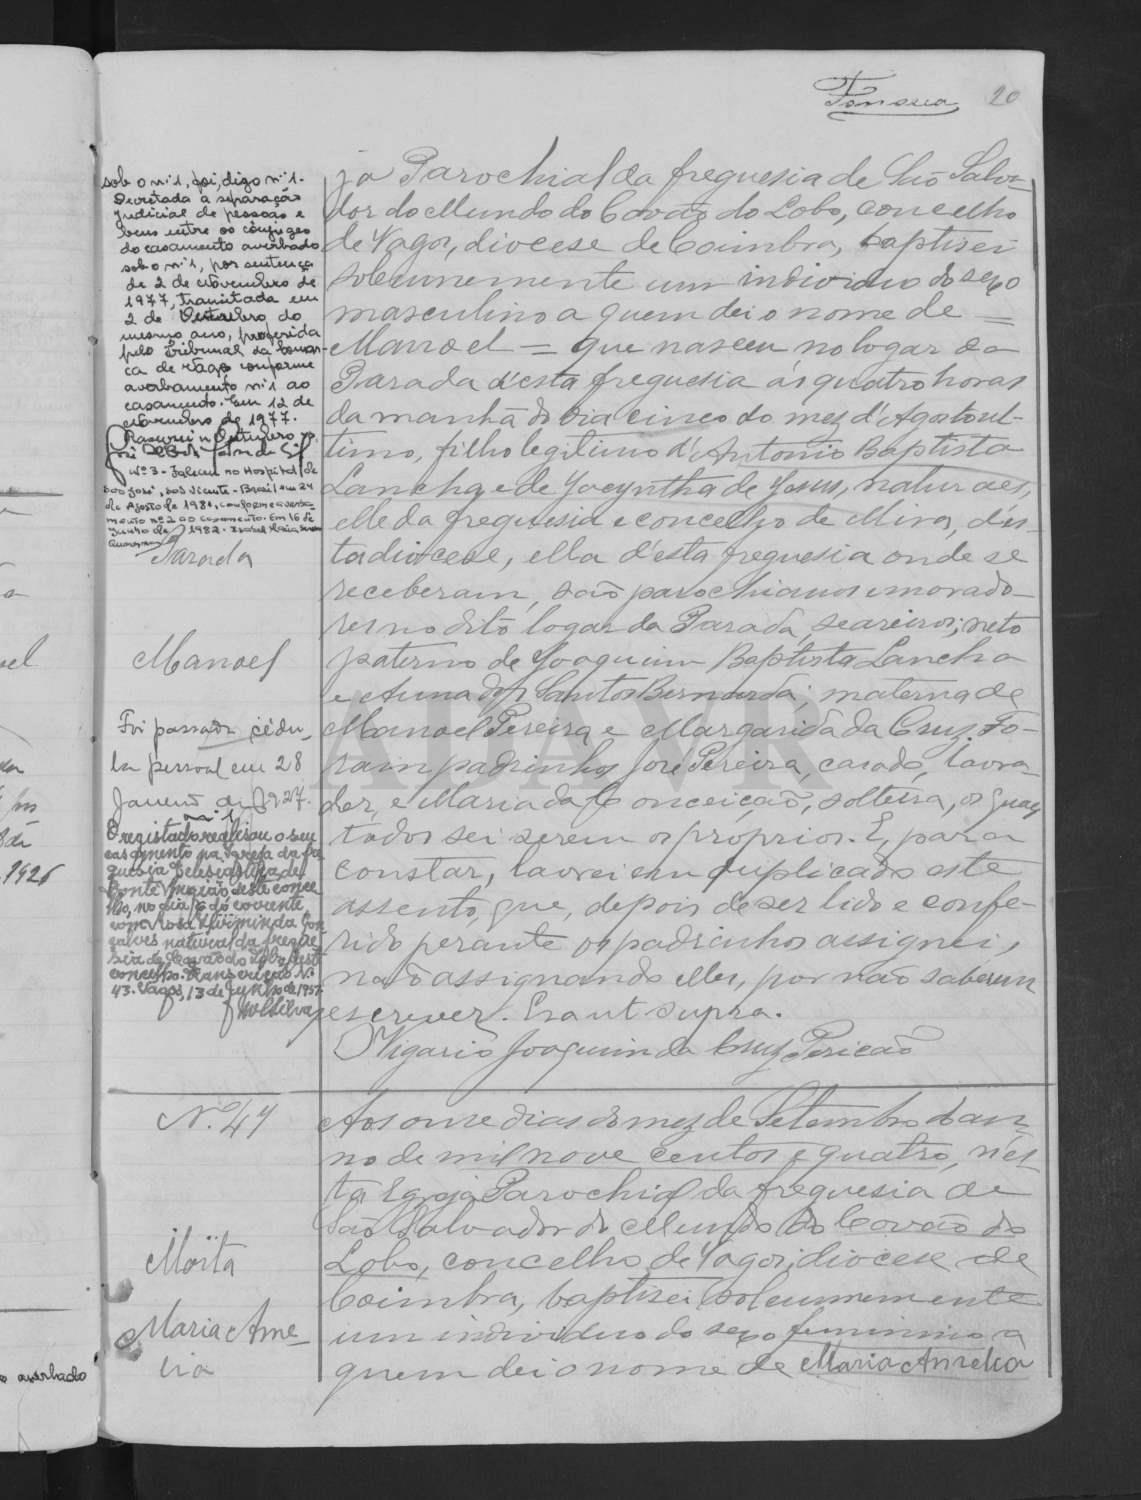 Fonseca 20
sob o nº 1, foi, digo nº 1.
Decretada a separação
judicial de pessoas e
bens entre os cônjuges
do casamento averbado
sob o nº 1, por sentença
de 2 de Novembro de
1977, transitada em
2 de Outubro do
mesmo ano, proferida
pelo Tribunal da Comar-
ca de Vagos, conforme
averbamento nº 1 ao
casamento. Em 12 de
Novembro de 1977.
Rasurei "Outubro"
Nº 3 - Faleceu no Hospital de
São José, São Vicente - Brasil em 24
de Agosto de 1981, conforme averba-
mento nº 2 ao casamento. Em 16 de
Junho de 1982.
Parada
Manoel
Foi passada cédu-
la pessoal em 28
Janeiro de 1927.
nº 1
O registado realisou o seu
casamento na Igreja da fre
guesia
Ponte de Vagos deste conce
lho, no dia 6 do corrente
com Rosa Gon
çalves natural da fregue
sia de Covão do Lobo, deste
concelho. Transcrição Nº
43. Vagos, 13 de Junho de 1957.
ja Parochial da freguesia de São Salva-
dor do Mundo do Covão do Lobo, concelho
de Vagos, diocese de Coimbra, baptisei
solemnemente um individuo do sexo
masculino a quem dei o nome de =
Manoel = que nasceu no logar da
Parada d'esta freguesia ás quatro horas
da manhã do dia cinco do mez d'Agosto ul-
timo, filho legitimo d'Antonio Baptista
Lancha e de Jacyntha de Jesus, naturaes,
elle da freguesia e concelho de Mira, d'es-
ta diocese, ella d'esta freguesia onde se
receberam, são parochianos e morado-
res no dito logar da Parada, seareiros; neto
paterno de Joaquim Baptista Lancha
e Anna dos Santos Bernarda; materno de
Manoel Pereira e Margarida da Cruz. Fo-
ram padrinhos José Pereira, casado, lavra-
dor, e Maria da Conceição, solteira, os quaes
todos sei serem os proprios. E, para
constar, lavrei em duplicado este
assento, que, depois de ser lido e confe-
rido perante os padrinhos assignei,
não assignando elles, por não saberem
escrever. Era ut supra.
O Vigario Joaquim da Cruz Pericão
N.º 47
Moita
Maria Ame-
lia
Aos onze dias do mez de Setembro do an-
no de mil nove centos e quatro, n'es-
ta Egreja Parochial da freguesia de
São Salvador do Mundo do Covão do
Lobo, concelho de Vagos, diocese de
Coimbra, baptisei solemnemente
um individuo do sexo feminino a
quem dei o nome de Maria Amelia
1926
averbado
ADAVR